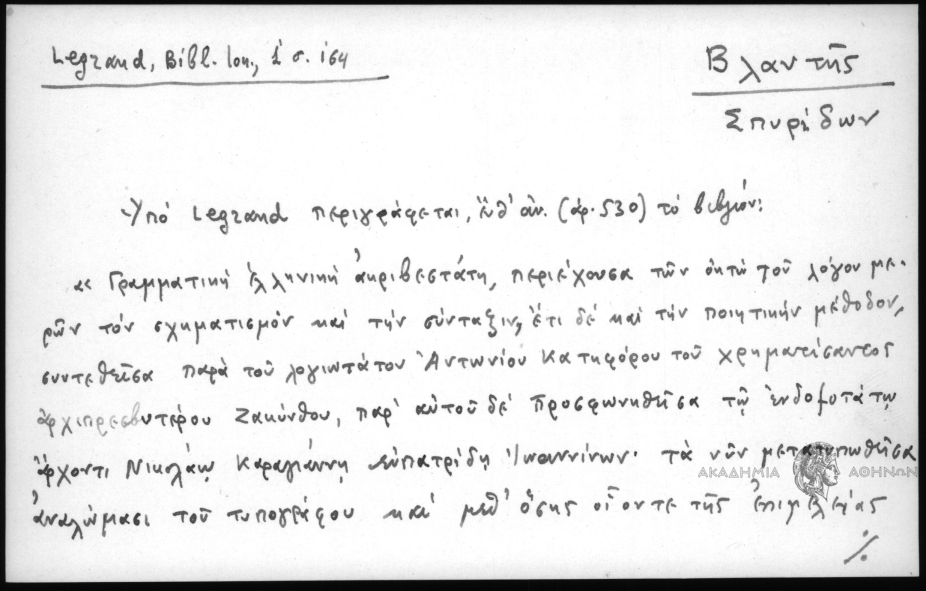 Legrand, Bibl. Ion., 1 σ. 164
Βλαντῆς
Σπυρίδων
Ὑπό Legrand περιγράφεται, (ἀρ. 530) τό βιβλίον:
«Γραμματική ἑλληνική ἀκριβεστάτη, περιέχουσα τῶν ὀκτώ τοῦ λόγου με-
ρῶν τόν σχηματισμόν καί τήν σύνταξιν, ἔτι δέ καί τήν ποιητικήν μέθοδον,
συντεθεῖσα παρά τοῦ λογιωτάτου Ἀντωνίου Κατηφόρου τοῦ χρηματίσαντος
ἀρχιπρεσβυτέρου Ζακύνθου, παρ' αὐτοῦ δέ προσφωνηθεῖσα τῷ ἐνδοξοτάτῳ
ἄρχοντι Νικολάῳ Καραγιάννῃ εὐπατρίδῃ Ἰωαννίνων· τά νῦν μετατυπωθεῖσα
ΑΚΑΔΗΜΙΑ ΑΘΗΝΩΝ
ἀναλώμασι τοῦ τυπογράφου καί μεθ' ὅσης οἷόν τε τῆς ἐπιμελείας
./.